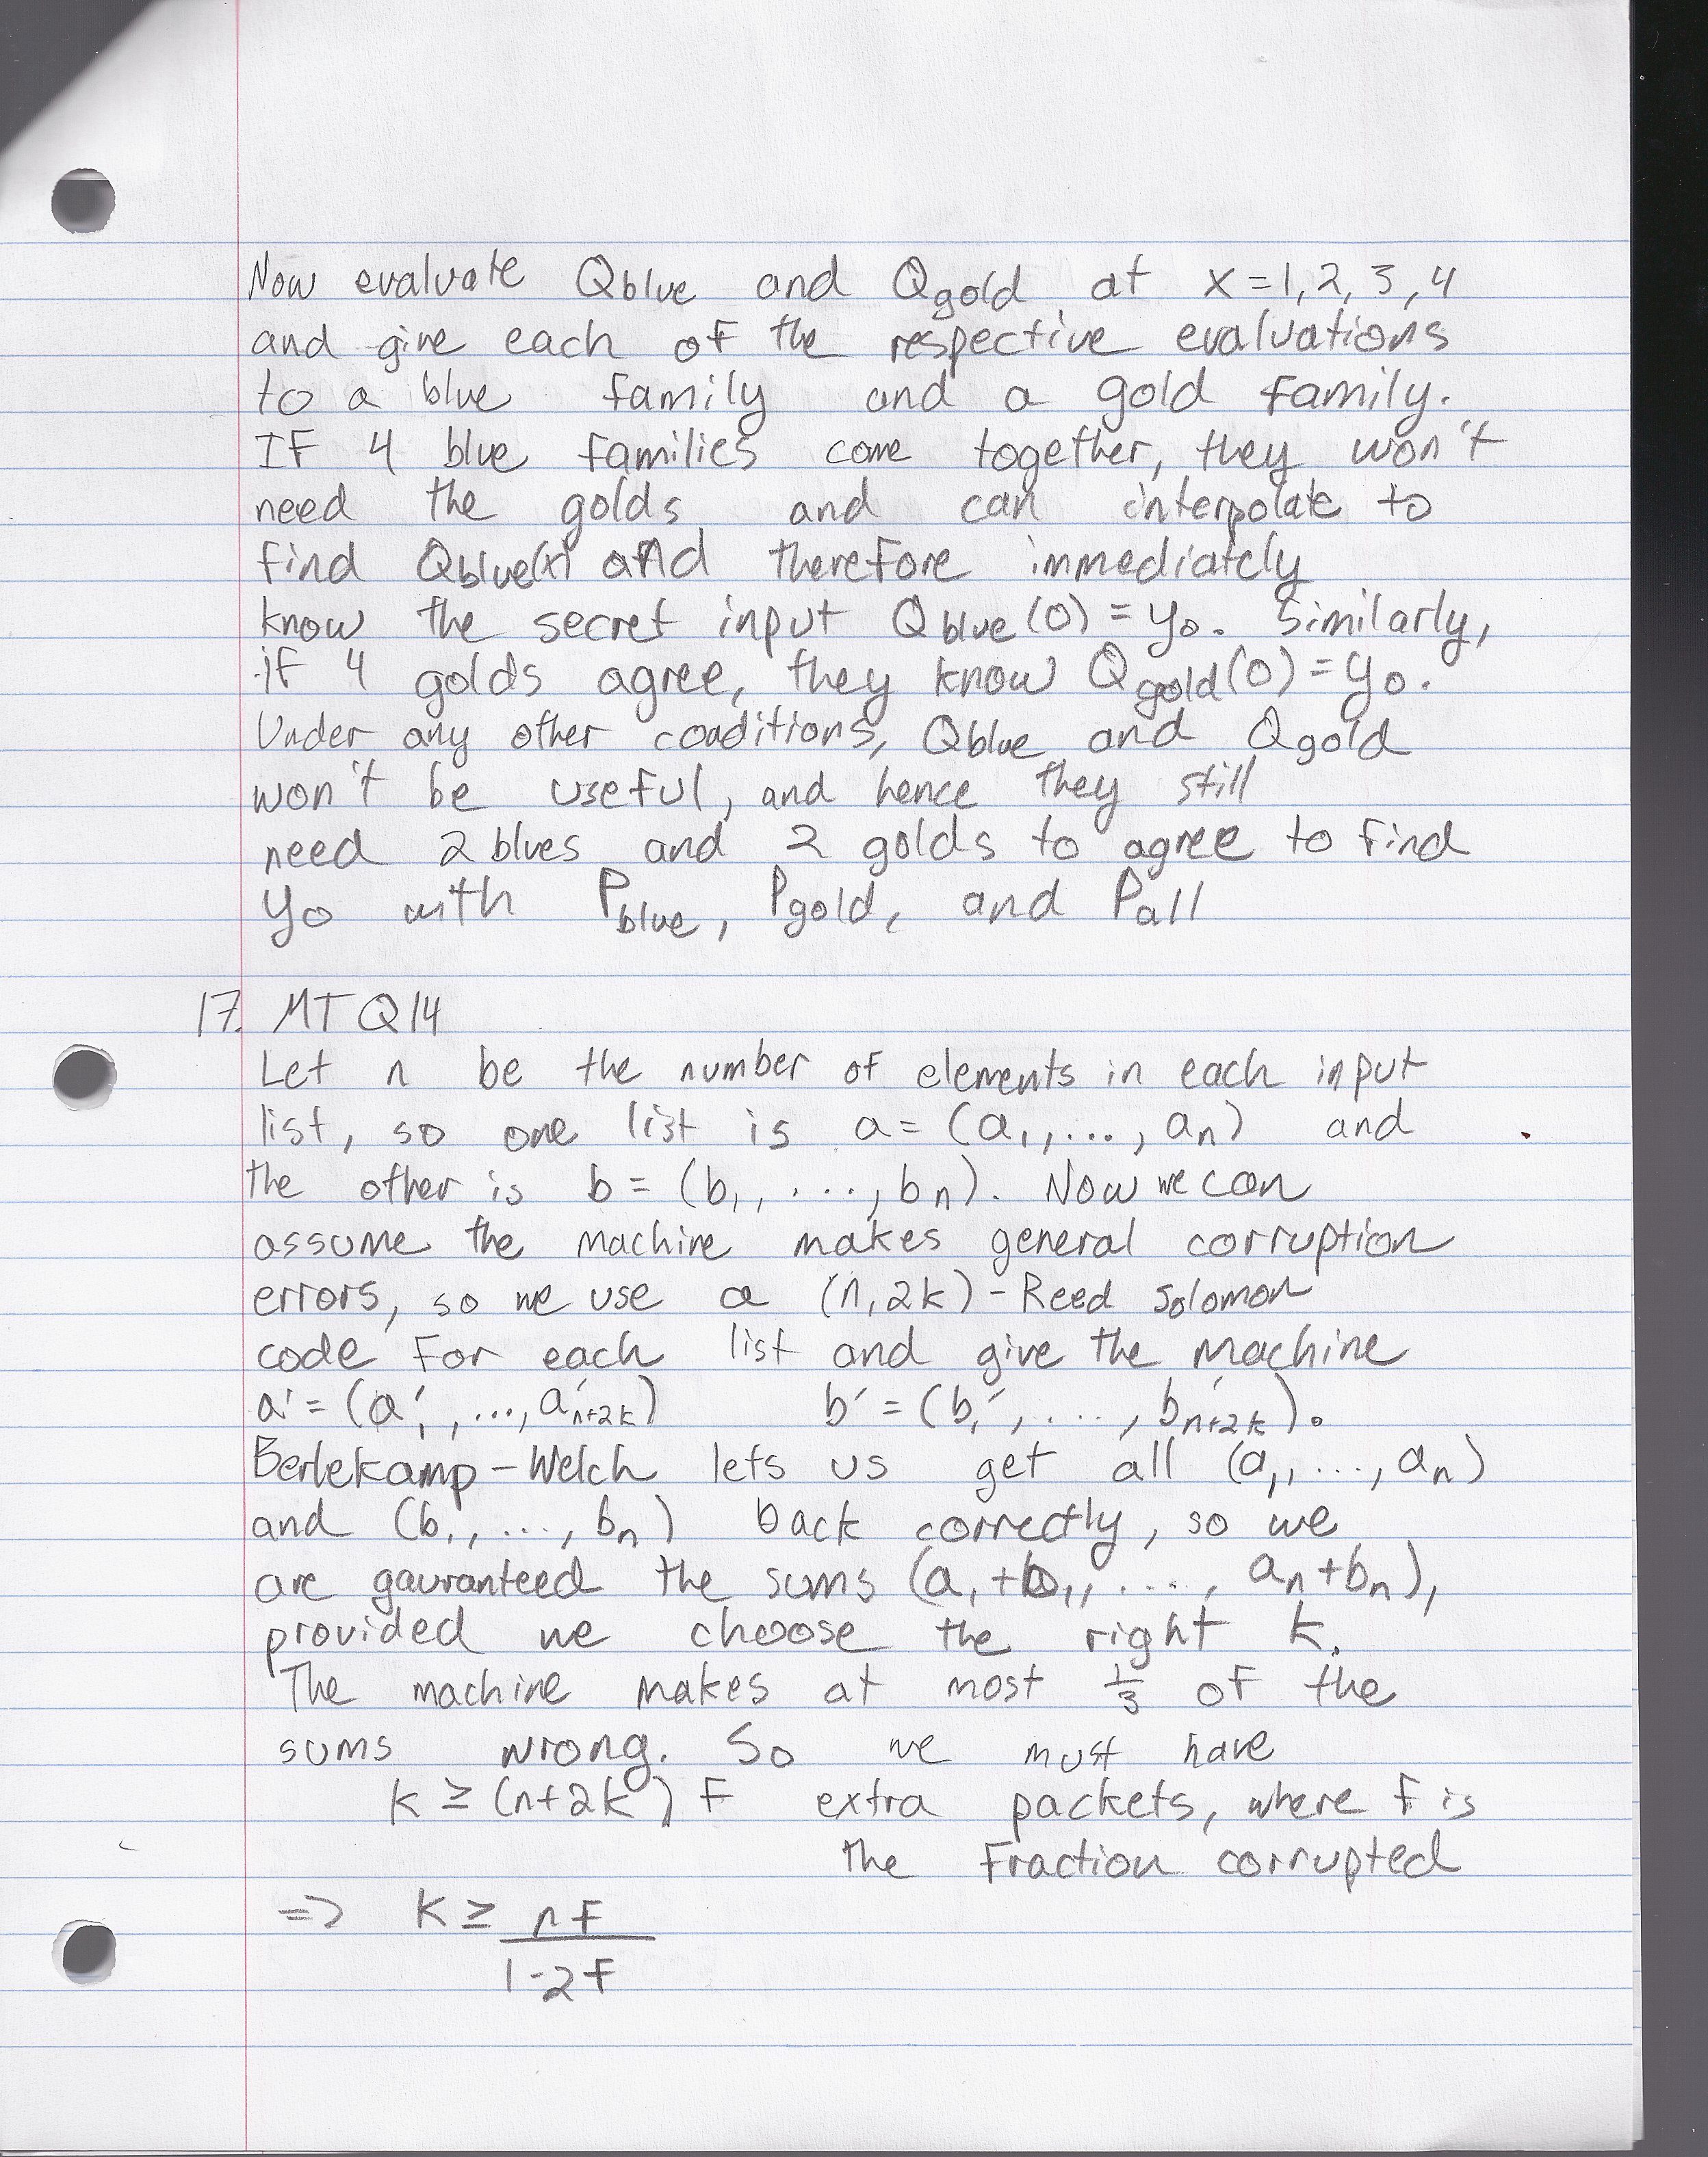 Now evaluate Qblue and Qgold at x=1,2,3,4
and give each of the respective evaluations
to a blue family and a gold family.
If 4 blue families come together, they won't
need the golds and can interpolate to
find Qblue(x) and therefore immediately
know the secret input Qblue(0)=y₀. Similarly,
if 4 golds agree, they know Qgold(0)=y₀.
Under any other conditions, Qblue and Qgold
won't be useful, and hence they still
need 2 blues and 2 golds to agree to find
y₀ with Pblue, Pgold, and Pall
17. MT Q14
Let n be the number of elements in each input
list, so one list is a=(a₁,...,aₙ) and
the other is b=(b₁,....,bₙ). Now we can
assume the machine makes general corruption
errors, so we use a (n,2k)-Reed Solomon
code for each list and give the machine
a'=(a'₁,...,a'ₙ₊₂ₖ) b'=(b₁',....,b'ₙ₊₂ₖ).
Berlekamp-Welch lets us get all (a₁,...,aₙ)
and (b₁,...,bₙ) back correctly, so we
are gauranteed the sums (a₁+b₁,....,aₙ+bₙ),
provided we choose the right k.
The machine makes at most 1/3 of the
sums wrong. So we must have
k ≥ (n+2k) f extra packets, where f is
the fraction corrupted
=> k ≥ nf
1-2f